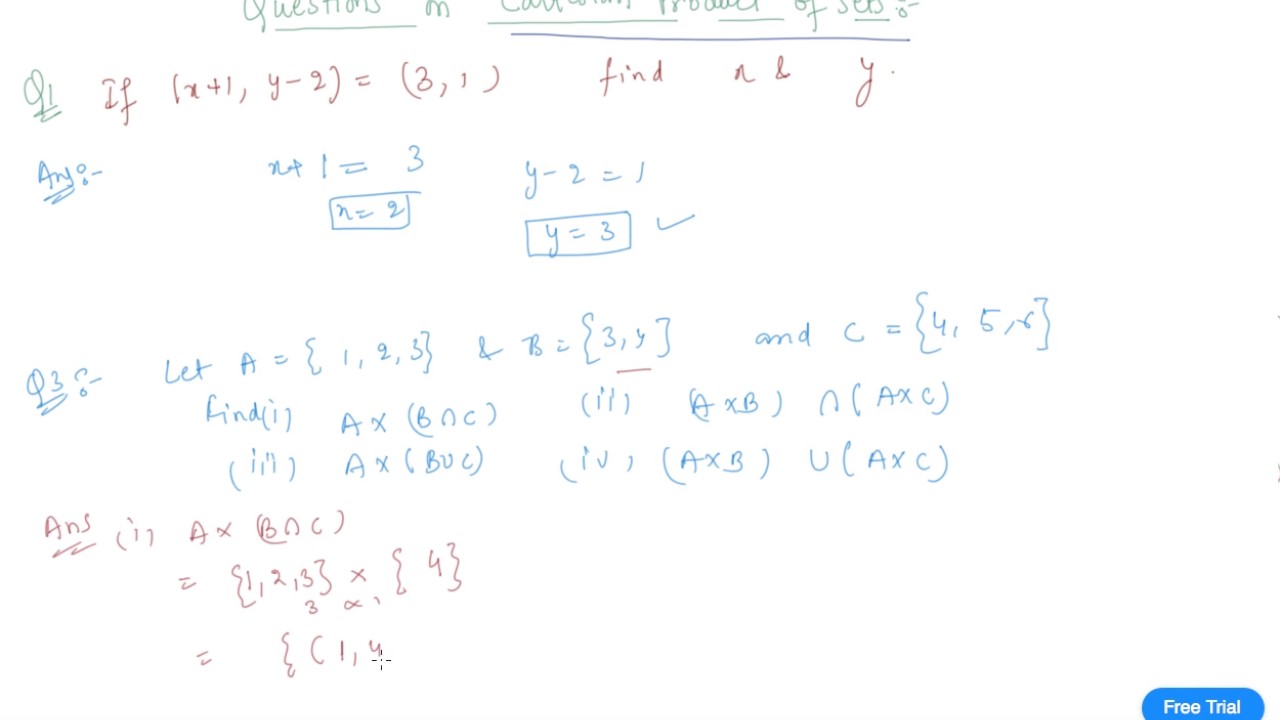 Questions on Cartesian Product of Sets:-
Q1 If (x+1, y-2) = (3, 1) find x & y.
Ans:- x+1 = 3 y-2 = 1
x = 2 y = 3 ✓
Q3:- Let A = { 1, 2, 3} & B = {3, 4} and C = {4, 5, 6}
Find (i) A × (B ∩ C) (ii) (A × B) ∩ (A × C)
(iii) A × (B ∪ C) (iv) (A × B) ∪ (A × C)
Ans (i) A × (B ∩ C)
= {1, 2, 3} × { 4}
3 × 1
= { (1, 4
Free Trial